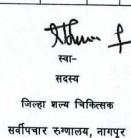 स्वा-
सदस्य
जिल्हा शल्य चिकित्सक
सर्वोपचार रुग्णालय, नागपूर